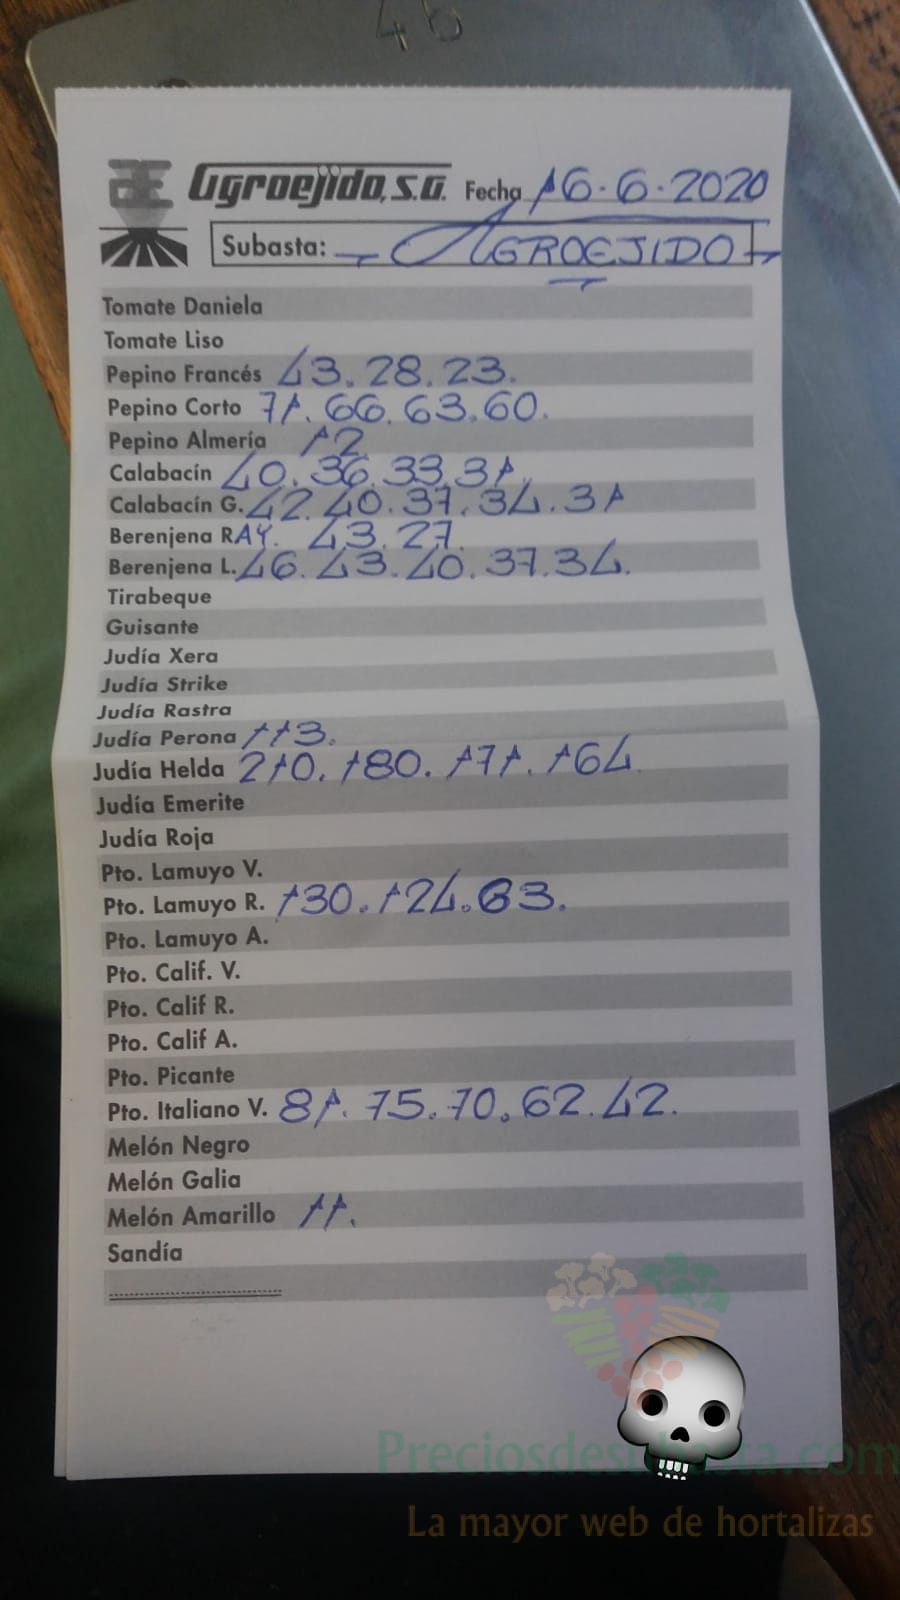 46
Agroejido, S.A. Fecha 16-6-2020
Subasta: AGROEJIDO
Tomate Daniela
Tomate Liso
Pepino Francés 43. 28. 23.
Pepino Corto 71. 66. 63. 60.
Pepino Almería 12
Calabacín 40. 36. 33. 31.
Calabacín G. 42. 40. 37. 34. 31
Berenjena RAY. 43. 27.
Berenjena L. 46. 43. 40. 37. 34.
Tirabeque
Guisante
Judía Xera
Judía Strike
Judía Rastra
Judía Perona 113.
Judía Helda 210. 180. 171. 164
Judía Emerite
Judía Roja
Pto. Lamuyo V.
Pto. Lamuyo R. 130. 124. 63.
Pto. Lamuyo A.
Pto. Calif. V.
Pto. Calif R.
Pto. Calif A.
Pto. Picante
Pto. Italiano V. 81. 75. 70. 62. 42.
Melón Negro
Melón Galia
Melón Amarillo 11.
Sandía
La mayor web de hortalizas